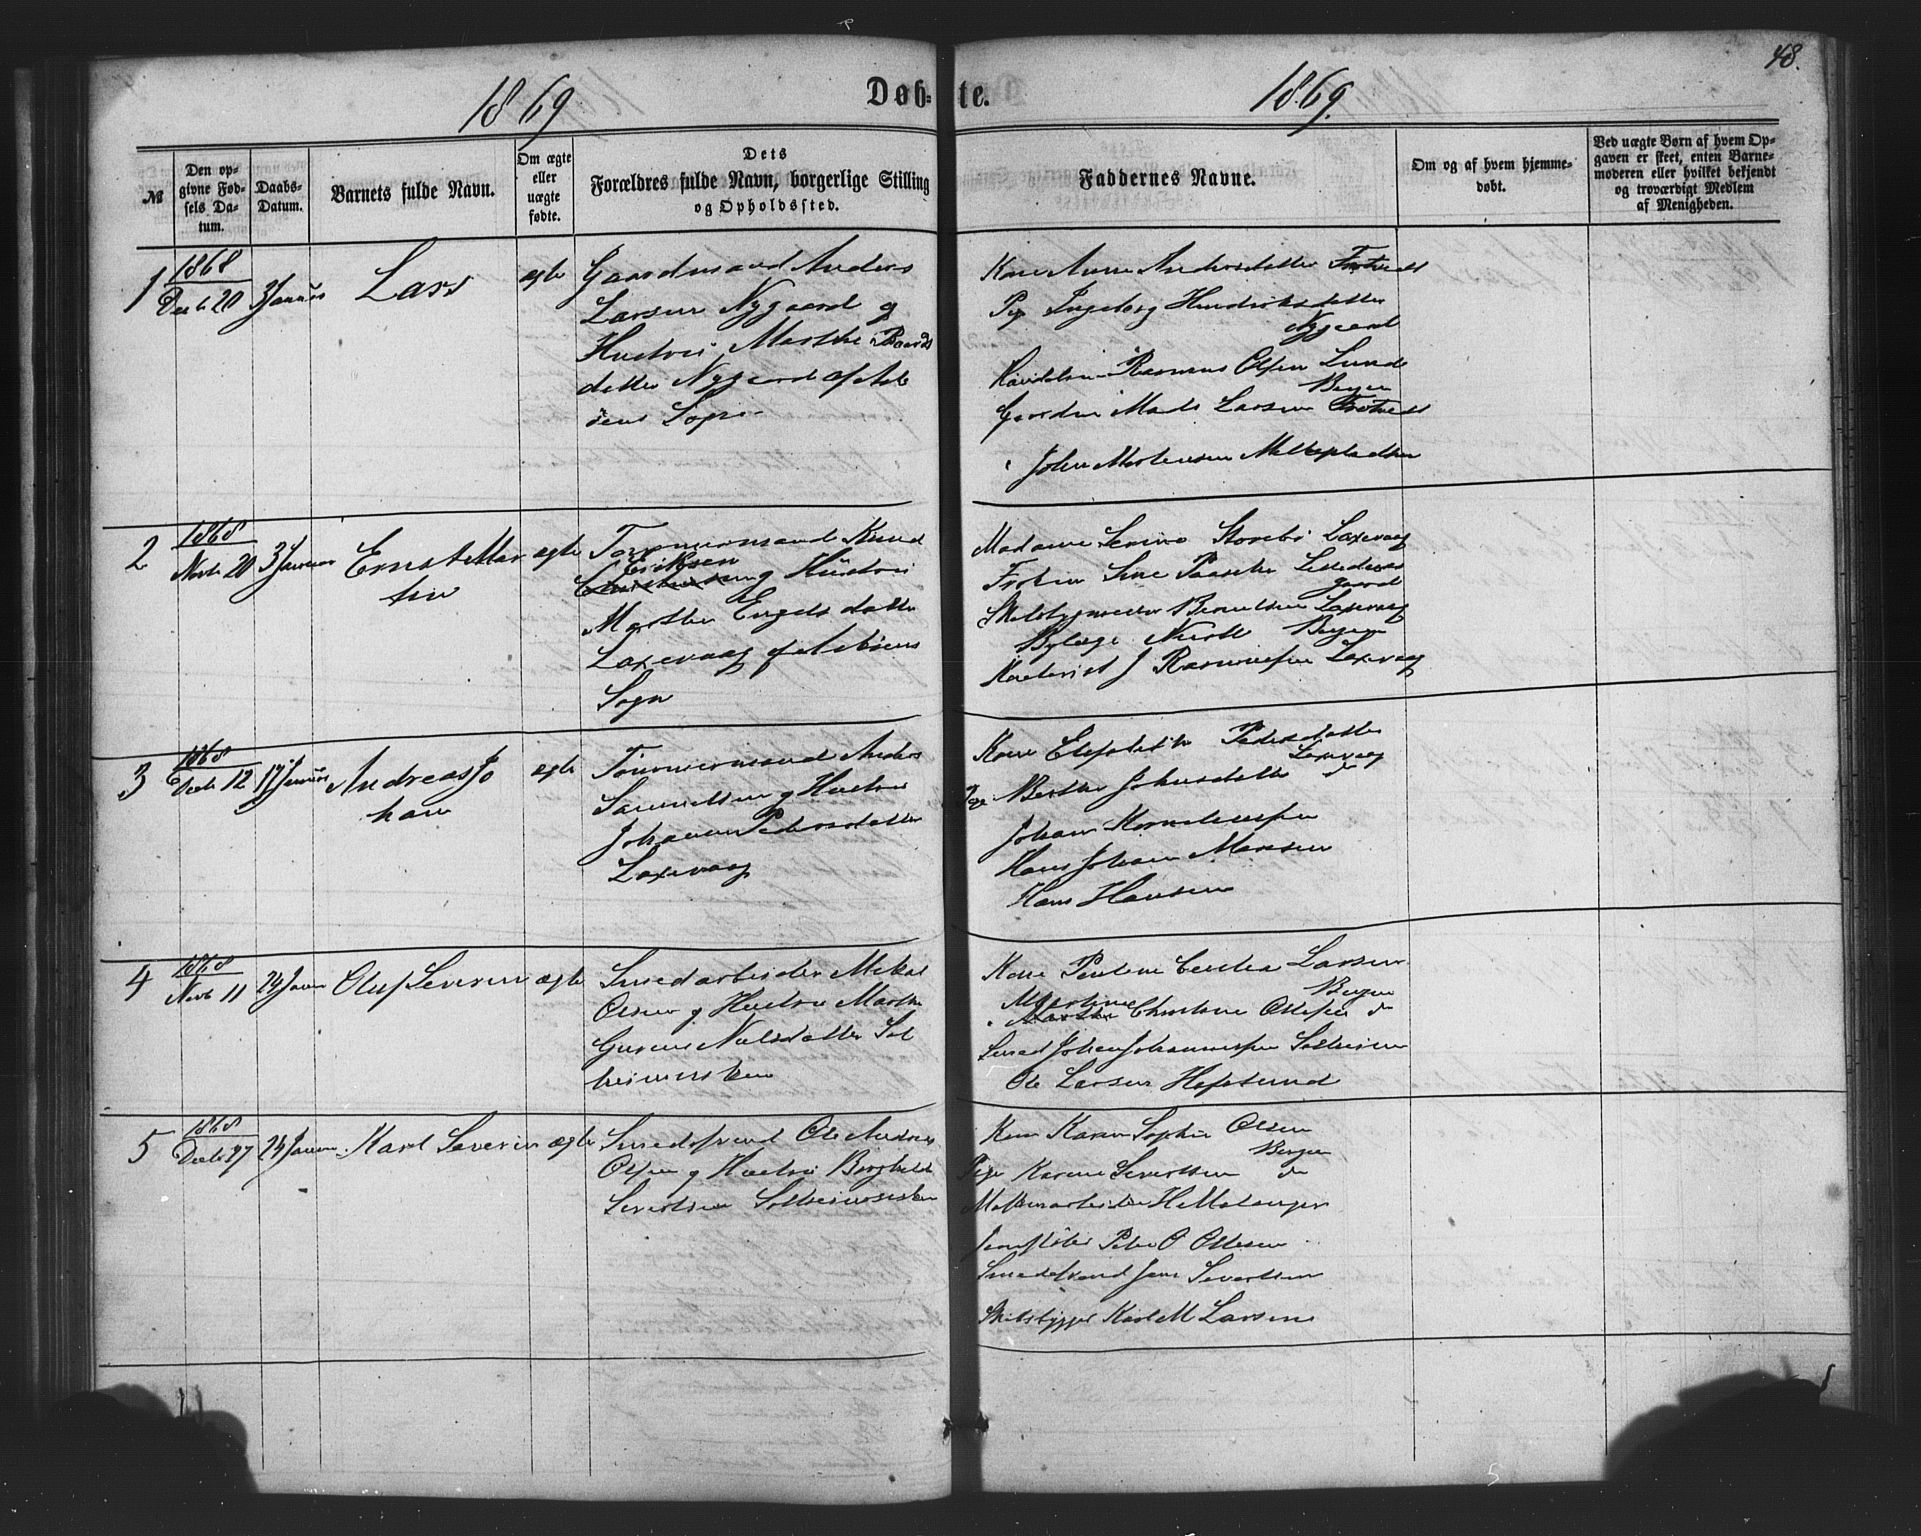 48.
1869
Døb-
te.
1869.
№
Den op-
givne Fød-
sels Da-
tum.
Daabs-
Datum.
Barnets fulde Navn.
Om ægte
eller
uægte
fødte.
Dets
Forældres fulde Navn, borgerlige Stilling
og Opholdssted.
Faddernes Navne.
Om og af hvem hjemme-
døbt.
Ved uægte Børn af hvem Op-
gaven er skeet, enten Barne-
moderen eller hvilket bekjendt
og troværdigt Medlem
af Menigheden.
1
1868
Decb 20
3 Januar
Lars
ægte
Gaardmand Anders
Larsen Nygaard og
Hustru Marthe Baards
datter Nygaard af Ask
øens Sogn
Kone Anne Andersdatter
Pige Ingeborg Hendriksdatter
Nygaard
Rasmus Olsen Lund
Bergen
Mads Larsen
John Mortensen
2
1868
Novb 20
3 Januar
Ernst Mar
tin
ægte
Tømmermand Knud
Eriksen
og Hustru
Marthe Engelsdatter
Laxevaag af Askøens
Sogn
Madame Storebø Laxevaag
Frøken Sine Paasche
gaard
Skibbygmester Berentsen Laxevaag
Bergen
J Rasmussen Laxevaag
3
1868
Decb 12
17 Januar
Andreas Jo
han
ægte
Tømmermand Anders
Samuelsen og Hustru
Johanne Pedersdatter
Laxevaag
Kone Elisabeth Pedersdatter
Laxevaag
Pige Berthe Johnsdatter do
Johan Korneliussen
Hans Johan Monsen
Hans Hansen
4
1868
Novb 11
24 Januar
Oluf Severin
ægte
Smedarbeider Mikal
Olsen og Hustru Marthe
Gurine Nilsdatter Sol
heimsviken
Kone Pauline Larsen
Bergen
Martine
Christine Ottesen do
Smed Johan Johannessen Solheim
Ole Larsen Hafsund
5
1868
Decb 27
24 Januar
Karl Severin
ægte
Smedsvend Ole Andreas
Olsen og Hustru Borghild
Severtsen Solheimsviken
Kone Karen Sophie Olsen
Bergen
Pige Karine Severtsen do
Maskinarbeider H Malanger
Jernstøber Peter O Ottesen
Smedesvend Jens Severtsen
Skibsbygger Karl M Larsen
5